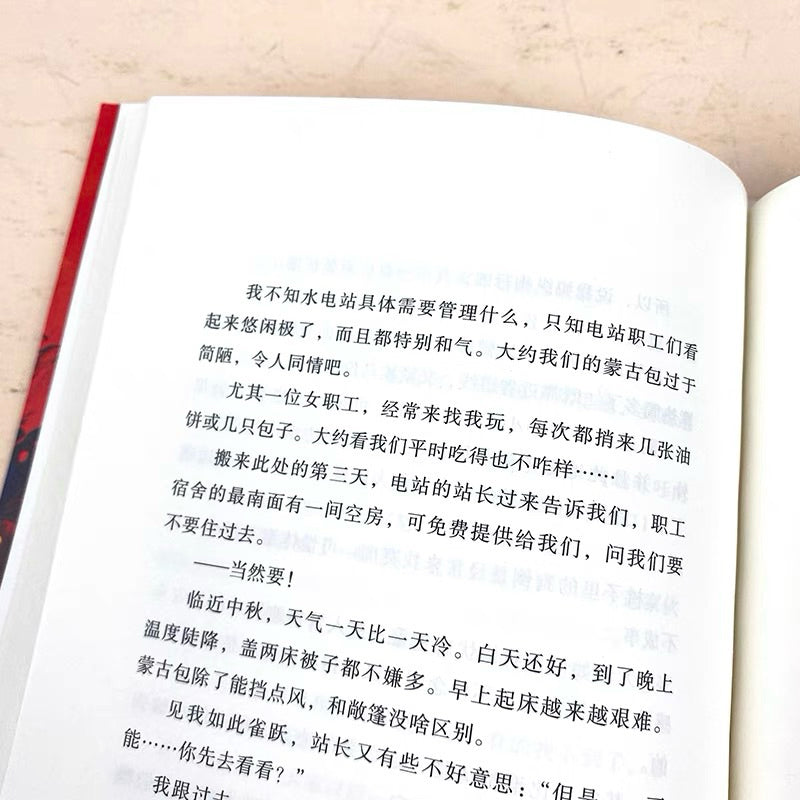 我不知水电站具体需要管理什么，只知电站职工们看
起来悠闲极了，而且都特别和气。大约我们的蒙古包过于
简陋，令人同情吧。
尤其一位女职工，经常来找我玩，每次都捎来几张油
饼或几只包子。大约看我们平时吃得也不咋样……
搬来此处的第三天，电站的站长过来告诉我们，职工
宿舍的最南面有一间空房，可免费提供给我们，问我们要
不要住过去。
——当然要！
临近中秋，天气一天比一天冷。白天还好，到了晚上
温度陡降，盖两床被子都不嫌多。早上起床越来越艰难。
蒙古包除了能挡点风，和敞篷没啥区别。
见我如此雀跃，站长又有些不好意思：“但是
能……你先去看看？”
我跟过去